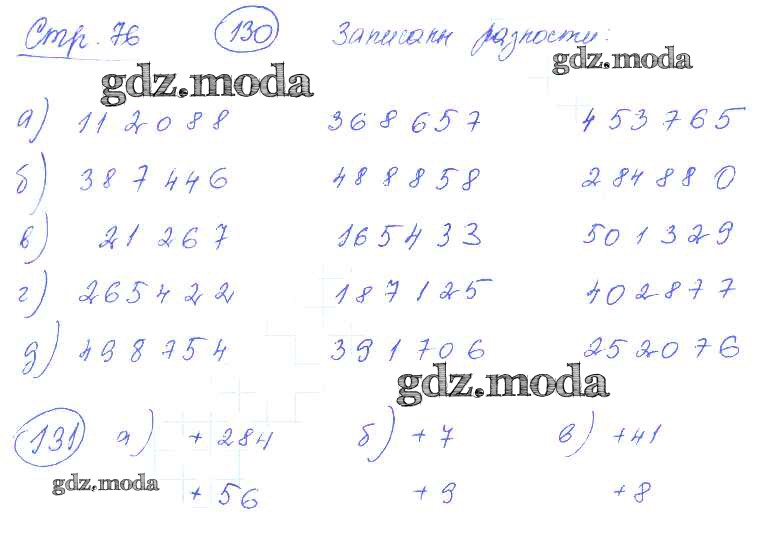 Стр. 76 130 Записаны разности:
gdz.moda gdz.moda
а) 112088 368657 453765
б) 387446 488858 284880
в) 21267 165433 501329
г) 265422 187125 402877
д) 498754 391706 252076
gdz.moda
131 а) + 284 б) + 7 в) + 41
gdz.moda
+ 56 + 9 + 8